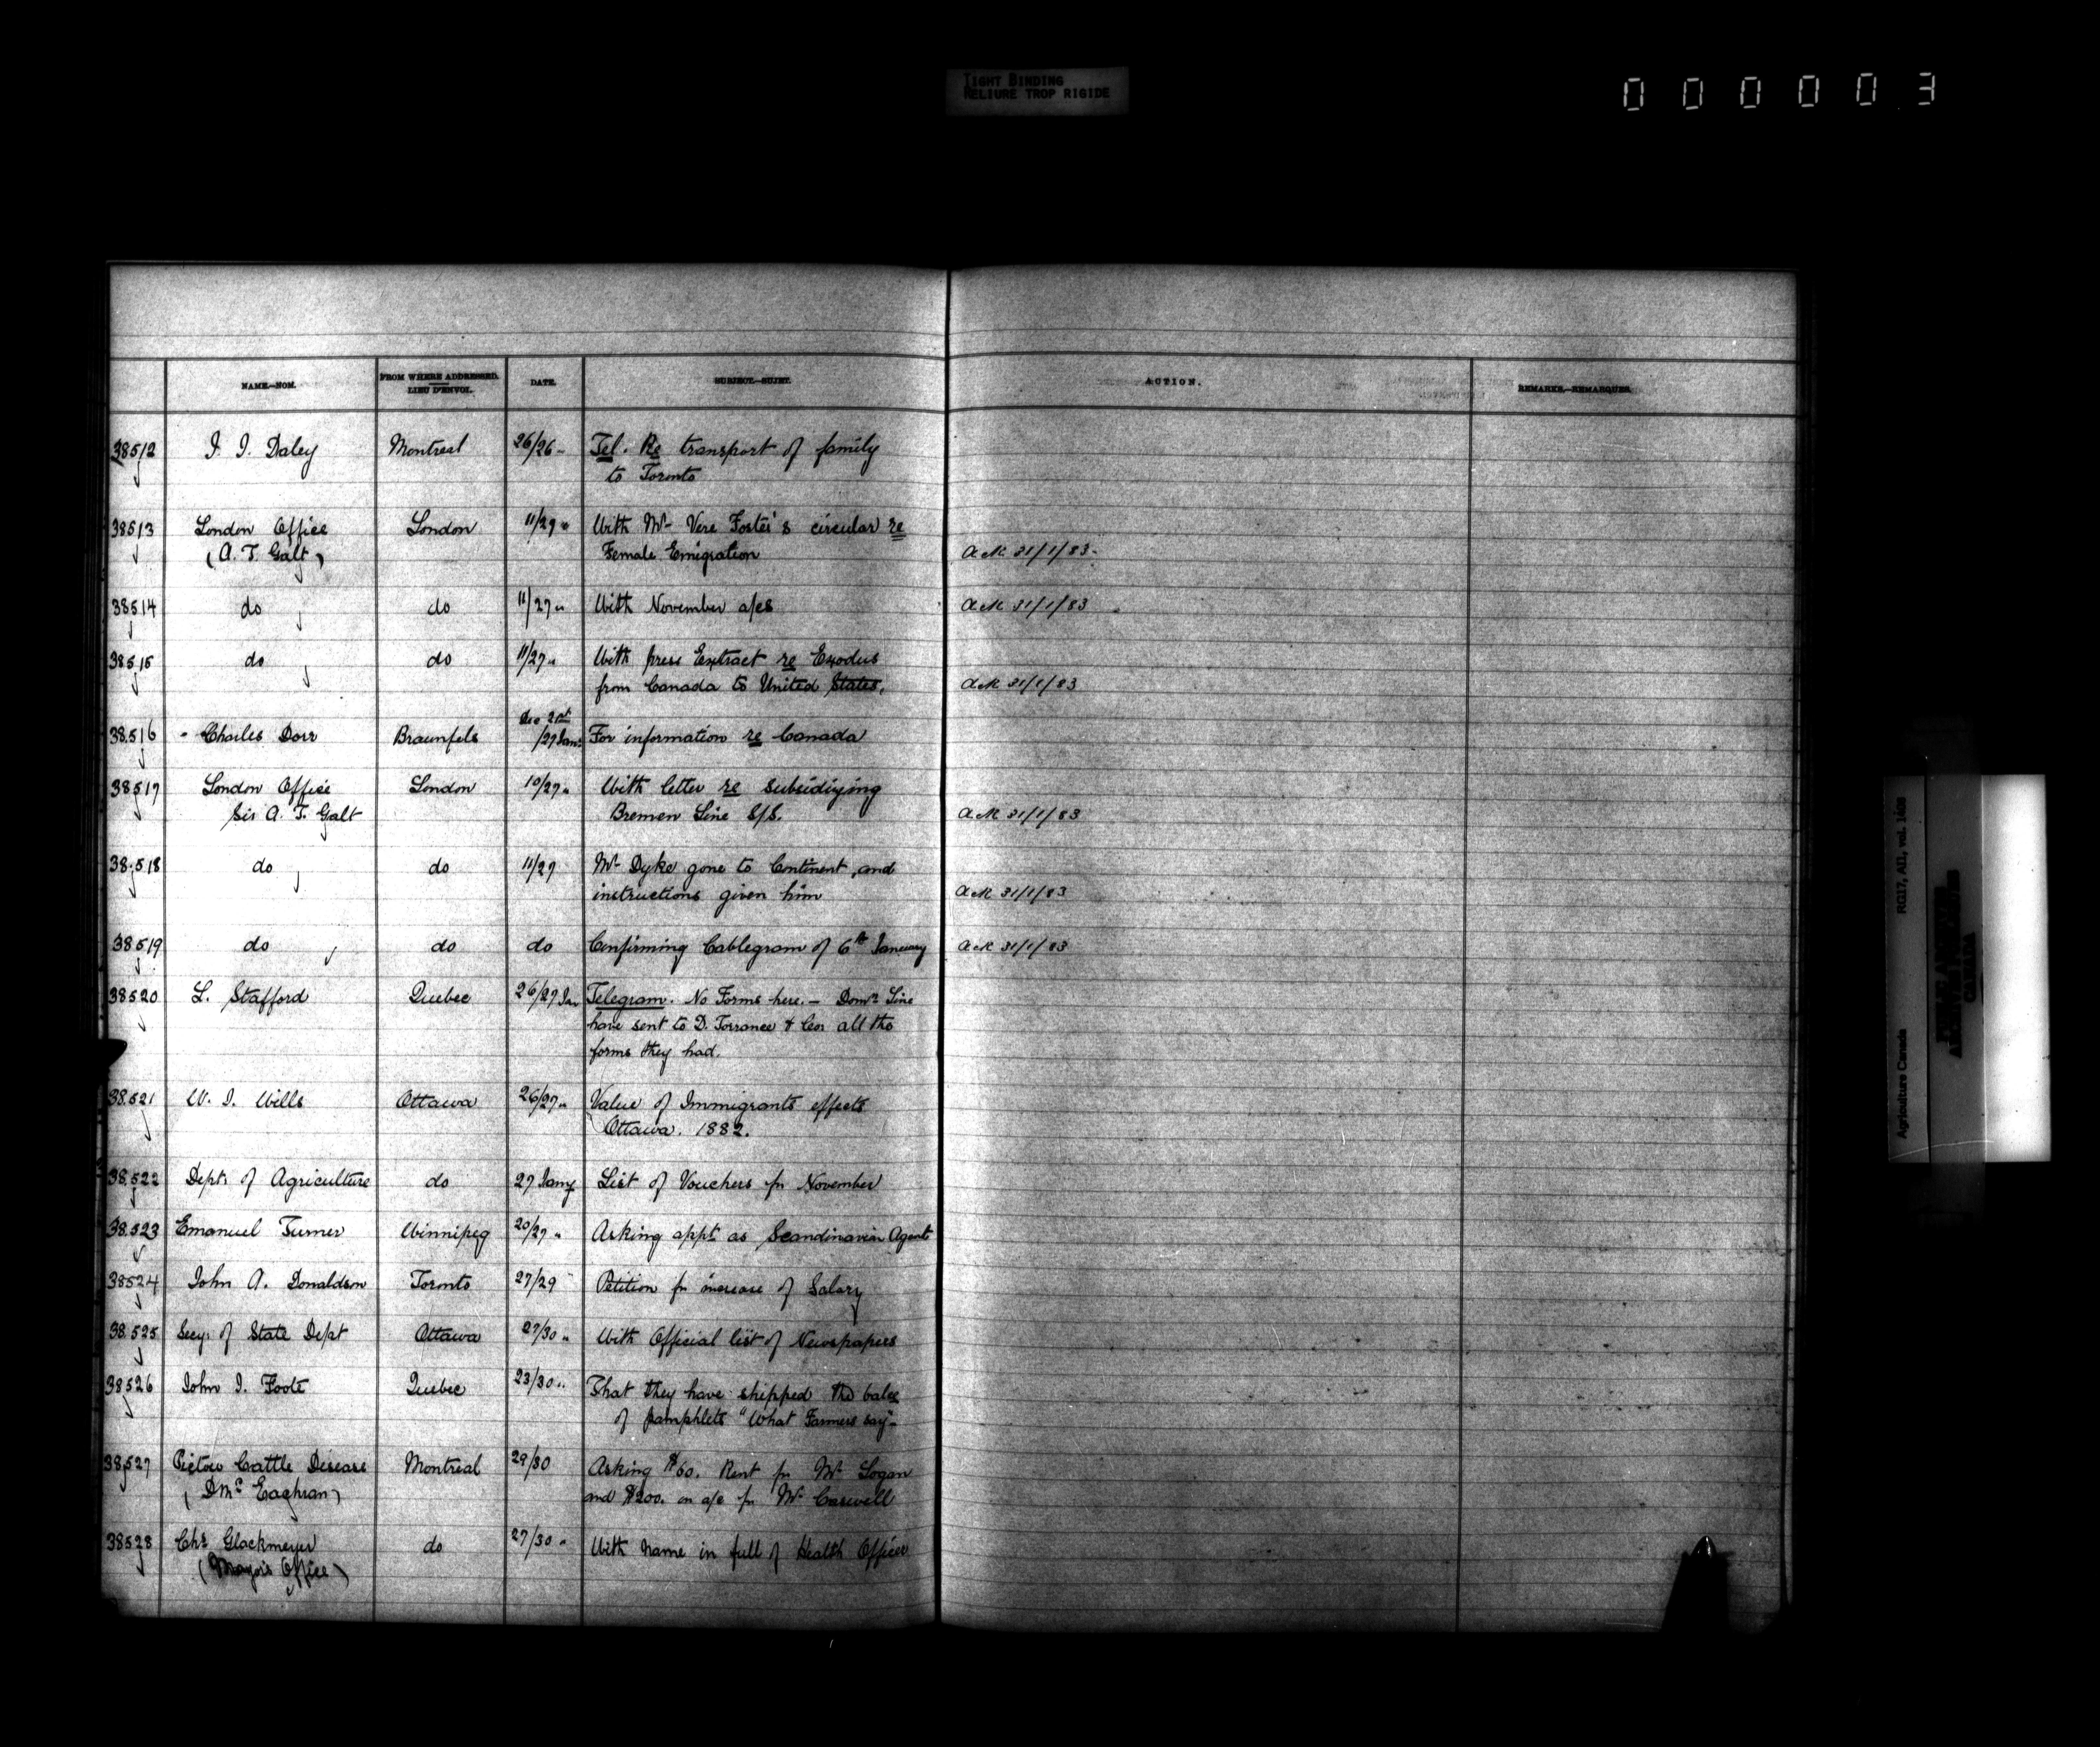 TIGHT BINDING
RELIURE TROP RIGIDE
000003
NAME.—NOM.
FROM WHERE ADDRESSED.
LIEU D'ENVOI.
DATE.
SUBJECT.—SUJET.
ACTION.
REMARKS.—REMARQUES.
38512 J. J. Daley Montreal 26/26 " Tel. Re transport of family
to Toronto
38513 London Office London 11/27 " With Mr Vere Foster's circular re
(A. T. Galt) Female Emigration Ack 31/1/83
38514 do do 11/27 " With November a/cs Ack 31/1/83
38515 do do 11/27 " With press Extract re Exodus
from Canada to United States. Ack 31/1/83
Dec 21st
38516 Charles Dorr Braunfels /27 Jan: For information re Canada
38517 London Office London 10/27 " With letter re subsidiying
Sir A. T. Galt Bremen Line S/S. Ack 31/1/83
38518 do do 11/27 Mr Dyke gone to Continent, and
instructions given him Ack 31/1/83
38519 do do do Confirming Cablegram of 6th January Ack 31/1/83
38520 L. Stafford Quebec 26/27 Jan Telegram. No Forms here. — Domn Line
have sent to D. Torrance & Coy all the
forms they had.
38521 W. J. Wills Ottawa 26/27 " Value of Immigrants effects
Ottawa. 1882.
38522 Dept. of Agriculture do 27 Jany List of Vouchers for November
38523 Emanuel Turner Winnipeg 20/27 " Asking appt as Scandinavian Agent
38524 John A. Donaldson Toronto 27/29 " Petition for increase of Salary
38525 Secy. of State Dept Ottawa 27/30 " With Official list of Newspapers
38526 John J. Foote Quebec 23/30 " That they have shipped the bales
of pamphlets "What Farmers say"
38527 Pictou Cattle Disease Montreal 29/30 Asking $60. Rent for Mr Logan
(D McEachran) and $200. on a/c for Mr Caswell
38528 Chs Glackmeyer do 27/30 " With name in full of Health Officer
(Mayor's Office)
Agriculture Canada RG17, AII, vol. 1408
PUBLIC ARCHIVES
ARCHIVES PUBLIQUES
CANADA